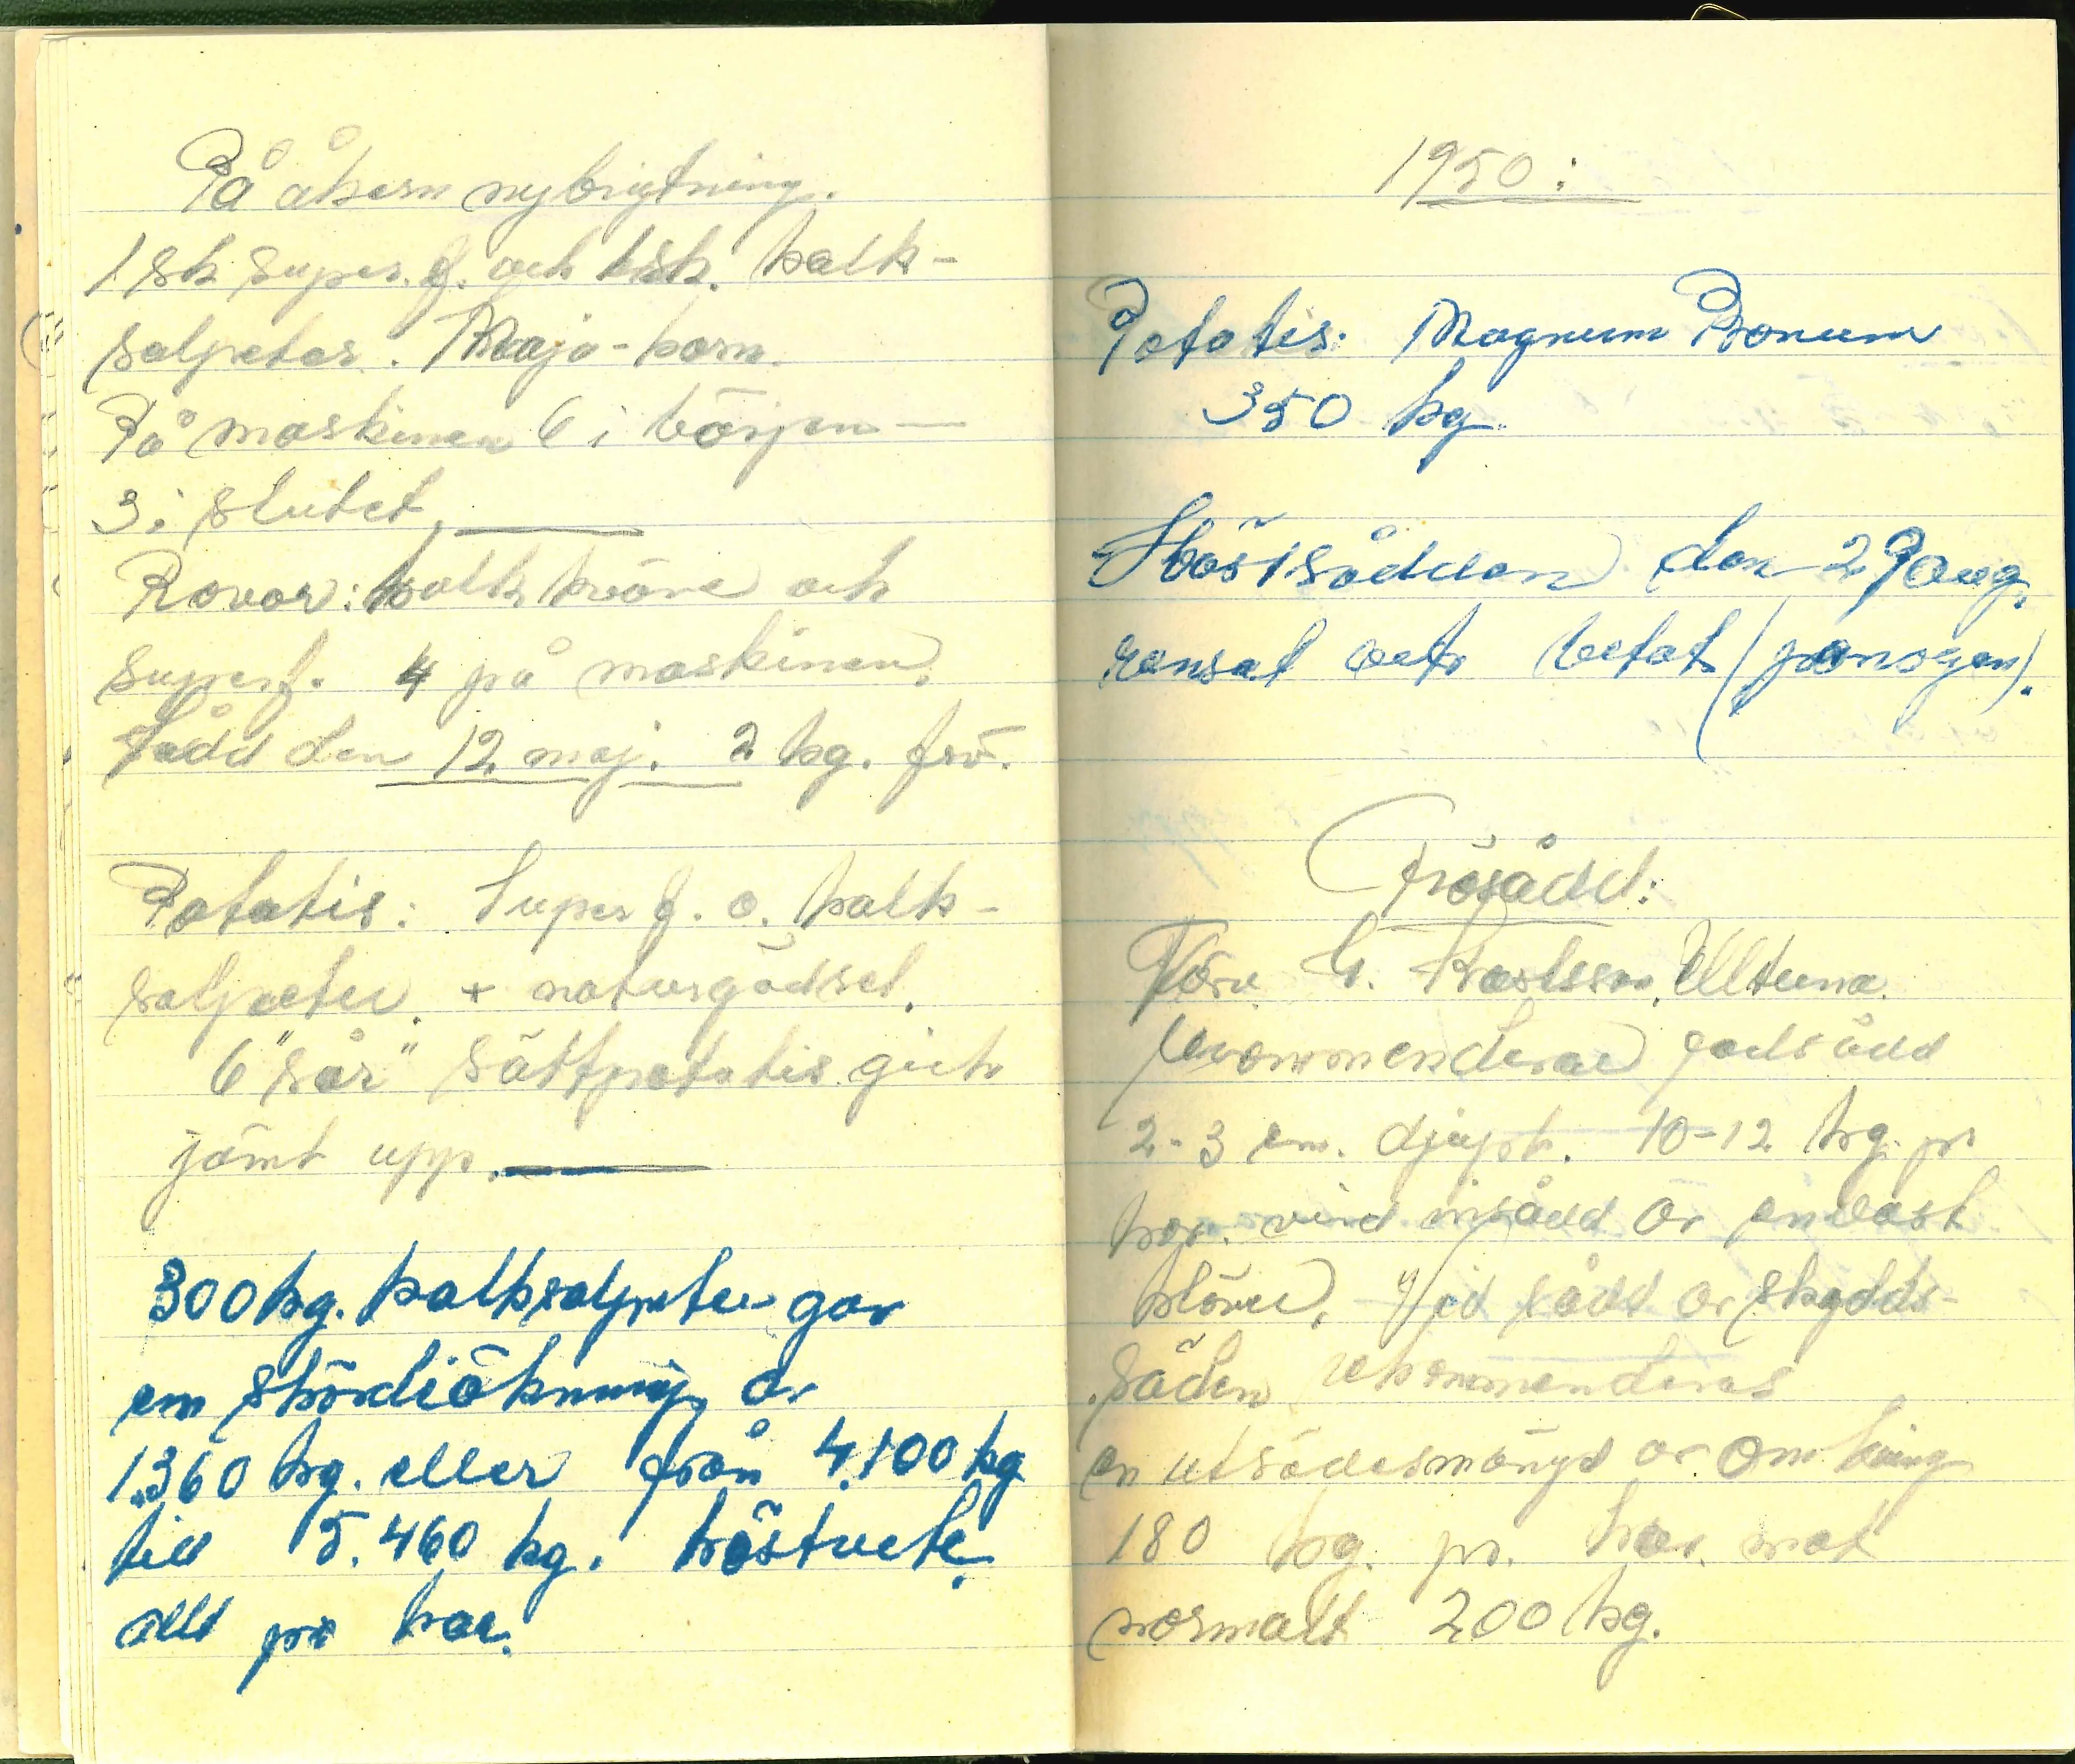 På åkern nybrytning.
1 sk super.f. och 1 sk. kalk-
salpeter. Maja-korn.
På maskinen 6 i början —
3 i slutet.
Rovor: kalkkväve och
superf. 4 på maskinen.
Sådd den 12 maj. 2 kg. frö.
Potatis: Super f. o. kalk-
salpeter. + naturgödsel.
6 "sår" sättpotatis gick
jämt upp.
300 kg. kalksalpeter gav
en skördeökning av
1.360 kg. eller från 4.100 kg
till 5.460 kg. höstvete.
allt pr har.
1950:
Potatis: Magnum Bonum
350 kg
Höstsådden den 29 aug.
rensat vete betat (panogen).
Frösådd:
Förv. G. Karlsson, Ultuna.
rekommenderar radsådd
2-3 cm. djupt. 10-12 kg. pr
har. vid insådd av endast
klöver. Vid sådd av skydds-
säden rekommenderas
en utsädesmängd av omkring
180 kg. pr. har. mot
normalt 200 kg.